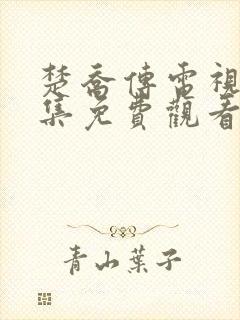 楚喬傳電視
集免費觀看
青山葉子